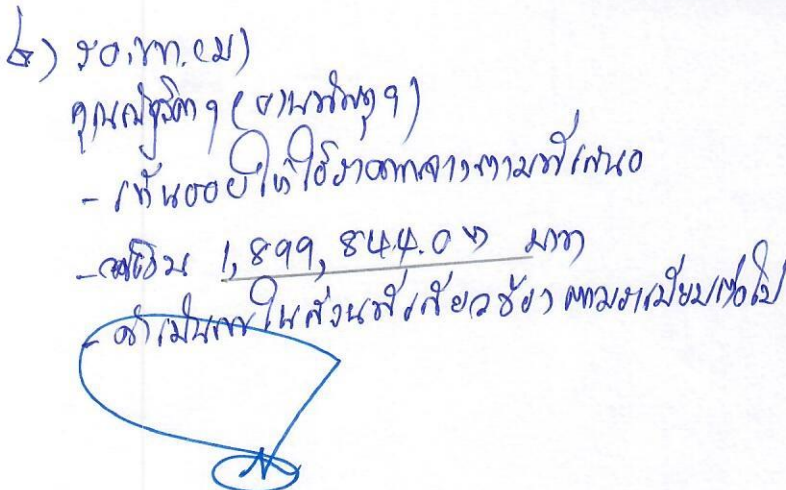 ๒) รอ.ขท.(ม)
คุณณัฐธิดาฯ (งานพัสดุฯ)
- เห็นชอบให้ใช้ราคากลางตามที่เสนอ
- วงเงิน 1,899,844.07 บาท
- ดำเนินการในส่วนที่เกี่ยวข้องตามระเบียบต่อไป